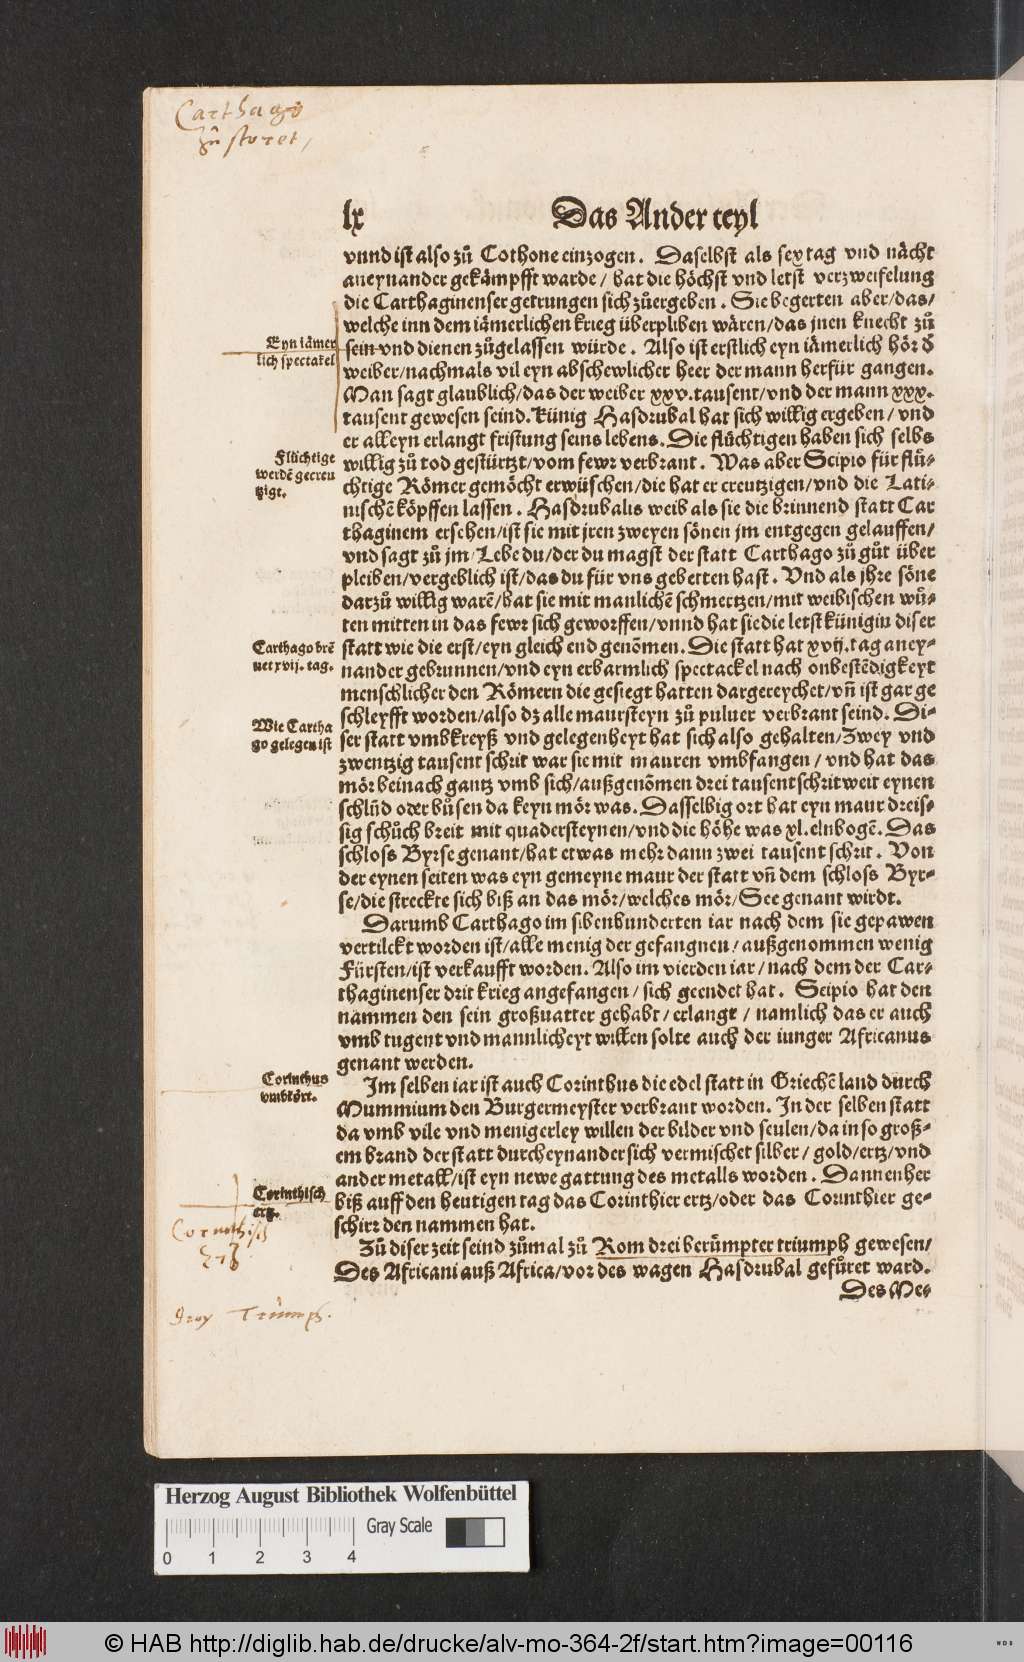 Carthago
zůstoret,
lx Das Ander teyl
vnnd ist also zů Cothone einzogen. Daselbst als sex tag vnd nächt
aneynander gekämpfft warde / hat die höchst vnd letst verzweifelung
die Carthaginenser getrungen sich zůergeben. Sie begerten aber/das/
welche inn dem iämerlichen krieg überpliben wären/das jnen knecht zů
sein vnd dienen zůgelassen würde. Also ist erstlich eyn iämerlich hör ď
weiber/nachmals vil eyn abschewlicher heer der mann herfür gangen.
Man sagt glaublich/das der weiber xxv.tausent/vnd der mann xxx.
tausent gewesen seind. Künig Hasdrubal hat sich willig ergeben / vnd
er alleyn erlangt fristung seins lebens. Die flüchtigen haben sich selbs
willig zů tod gestürtzt/vom fewr verbrant. Was aber Scipio für flü-
chtige Römer gemöcht erwüschen/die hat er creutzigen/vnd die Lati-
nischē köpffen lassen. Hasdrubalis weib als sie die brinnend statt Car
thaginem ersehen/ist sie mit jren zweyen sönen jm entgegen gelauffen/
vnd sagt zů jm/Lebe du/der du magst der statt Carthago zů gůt über
pleiben/vergeblich ist/das du für vns gebetten hast. Vnd als jhre söne
darzů willig warē/hat sie mit manlichē schmertzen/mit weibischen wů-
ten mitten in das fewr sich geworffen/vnnd hat sie die letst künigin diser
statt wie die erst/eyn gleich end genōmen. Die statt hat xvij.tag aney-
nander gebrunnen/vnd eyn erbarmlich spectackel nach onbestēdigkeyt
menschlicher den Römern die gesiegt hatten dargereychet/vñ ist gar ge
schleyfft worden/also dz alle maursteyn zů puluer verbrant seind. Di-
ser statt vmbkreyß vnd gelegenheyt hat sich also gehalten/Zwey vnd
zwentzig tausent schrit war sie mit mauren vmbfangen / vnd hat das
mör beinach gantz vmb sich/außgenōmen drei tausent schrit weit eynen
schlund oder bůsen da keyn mör was. Dasselbig ort hat eyn maur dreis-
sig schůch breit mit quadersteynen/vnd die höhe was xl.elnbogē. Das
schloss Byrse genant/hat etwas mehr dann zwei tausent schrit. Von
der eynen seiten was eyn gemeyne maur der statt vñ dem schloss Byr-
se/die streckte sich biß an das mör/welches mör/See genant wirdt.
Darumb Carthago im sibenhunderten iar nach dem sie gepawen
vertilckt worden ist/alle menig der gefangnen/außgenommen wenig
Fürsten/ist verkaufft worden. Also im vierden iar / nach dem der Car-
thaginenser drit krieg angefangen / sich geendet hat. Scipio hat den
nammen den sein großuatter gehabt / erlangt / namlich das er auch
vmb tugent vnd mannlicheyt willen solte auch der iunger Africanus
genant werden.
Im selben iar ist auch Corinthus die edel statt in Griechē land durch
Mummium den Burgermeyster verbrant worden. In der selben statt
da vmb vile vnd menigerley willen der bilder vnd seulen/da in so groß-
em brand der statt durcheynander sich vermischet silber / gold/ertz/vnd
ander metall/ist eyn newe gattung des metalls worden. Dannenher
biß auff den heutigen tag das Corinthier ertz/oder das Corinthier ge-
schirr den nammen hat.
Zů diser zeit seind zůmal zů Rom drei berümpter triumph gewesen/
Des Africani auß Africa/vor des wagen Hasdrubal gefůret ward.
Des Me-
Eyn iämer
lich spectakel
Flüchtige
werdē gecreu
tzigt.
Carthago brē
net xvij. tag.
Wie Cartha
go gelegen ist
Corinthus
vmbkört.
Corinthisch
ertz.
Corinthisch
Ertz
drey Triumph.
Herzog August Bibliothek Wolfenbüttel
Gray Scale
0 1 2 3 4
© HAB http://diglib.hab.de/drucke/alv-mo-364-2f/start.htm?image=00116